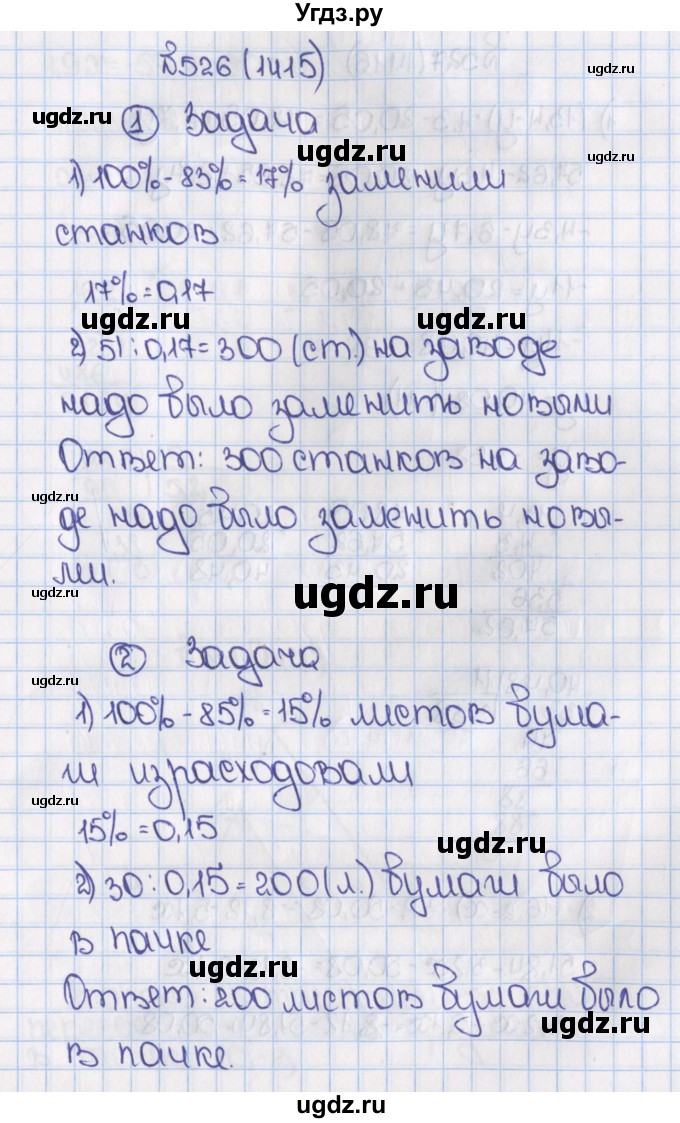 Угдз.ру
№526 (1415)
ugdz.ru
ugdz.ru
① Задача
ugdz.ru
ugdz.ru
1) 100% - 83% = 17% заменили
станков
17% = 0,17
ugdz.ru
ugdz.ru
2) 51 : 0,17 = 300 (ст.) на заводе
надо было заменить новыми
Ответ: 300 станков на заво-
ugdz.ru
де надо было заменить новы-
ми.
ugdz.ru
ugdz.ru
② Задача
ugdz.ru
1) 100% - 85% = 15% листов бума-
ги израсходовали
ugdz.ru
15% = 0,15
ugdz.ru
2) 30 : 0,15 = 200 (л.) бумаги было
в пачке
ugdz.ru
Ответ: 200 листов бумаги было
ugdz.ru
в пачке.
ugdz.ru